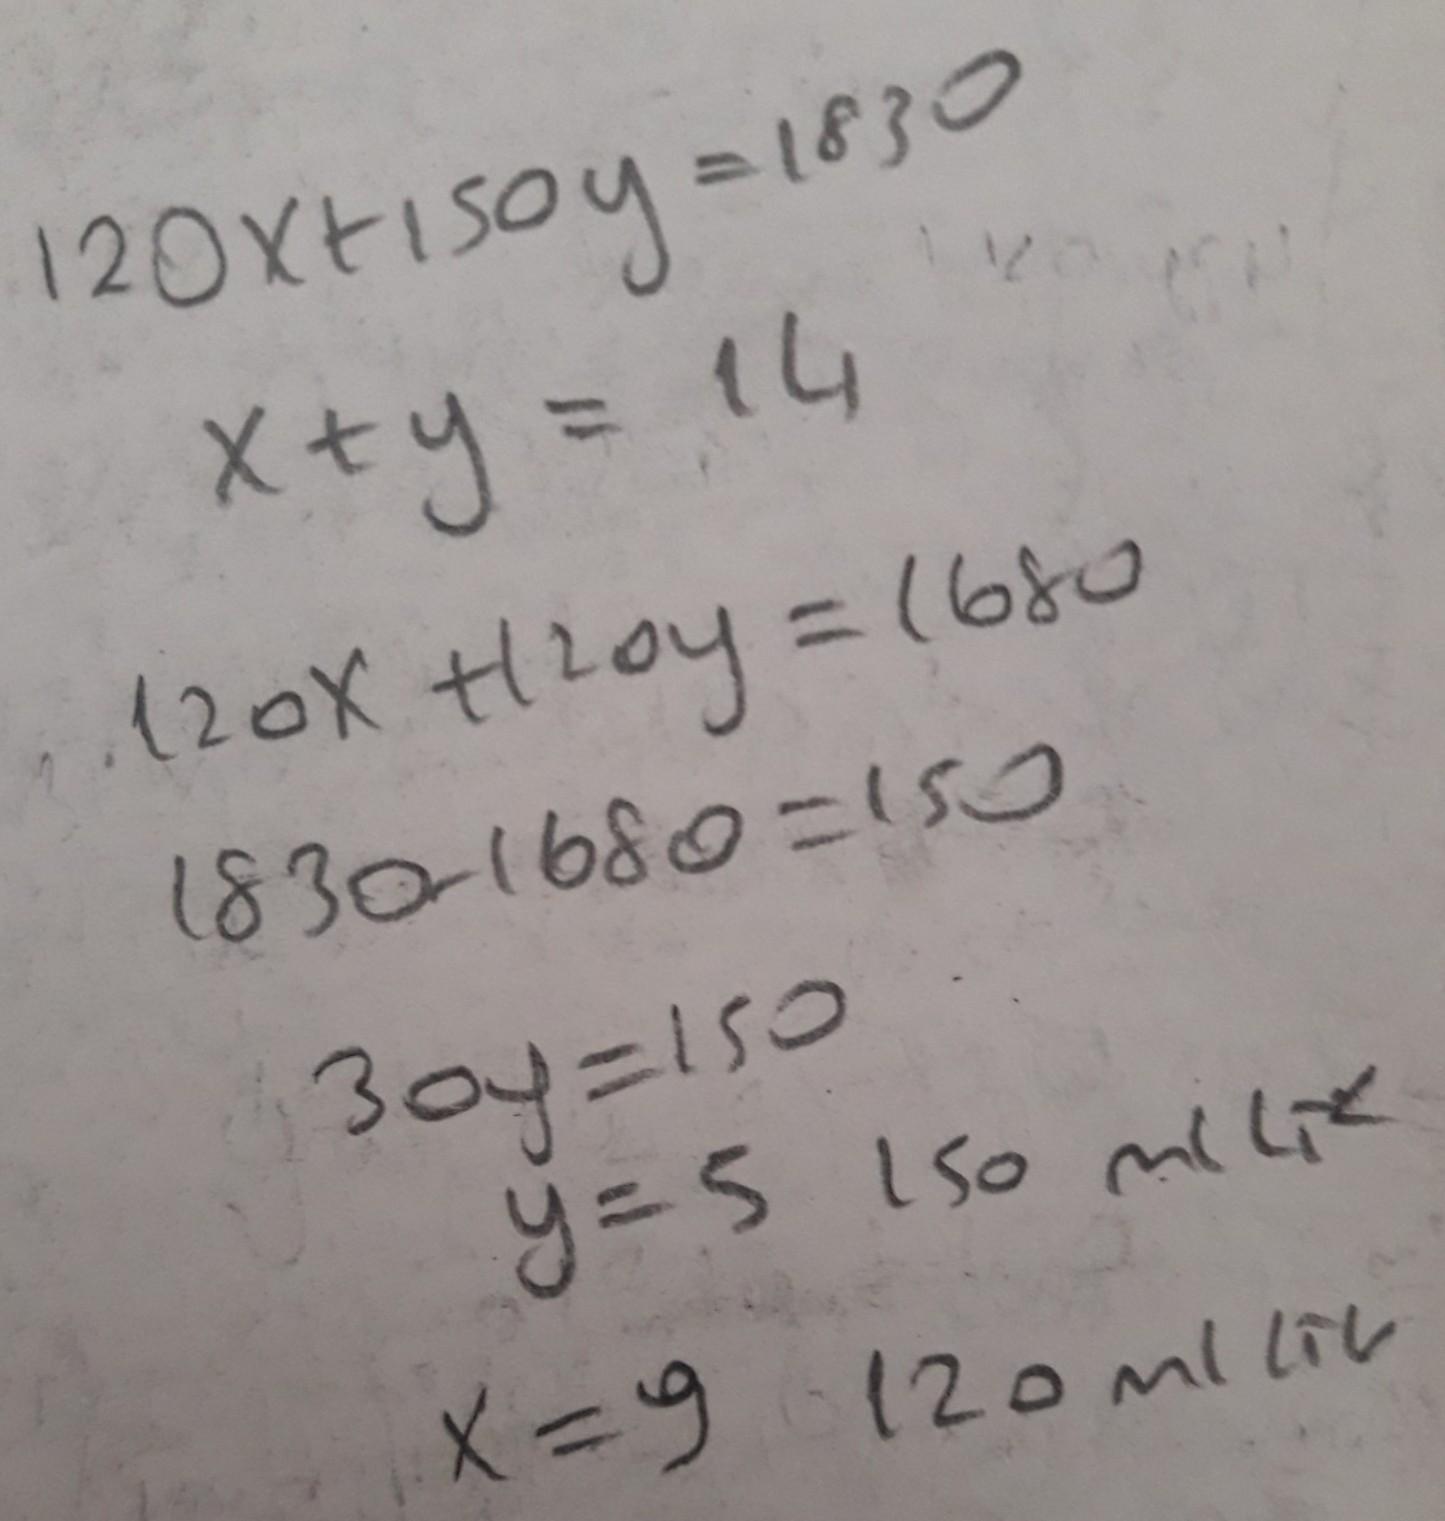 120x+150y=1830
x+y = 14
120x +120y=1680
1830-1680=150
30y=150
y=5 150 ml lik
x=9 120 ml lik